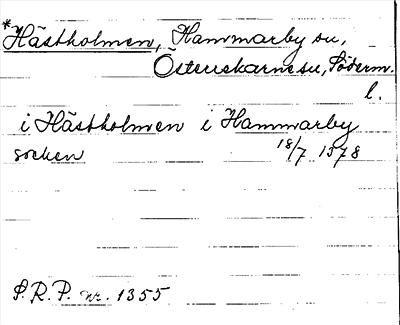 *Hästholmen, Hammarby sn,
Österrekarne sn, Söderm.
l.
i Hästholmen i Hammarby
socken 18/7 1578
S.R.P. nr. 1355